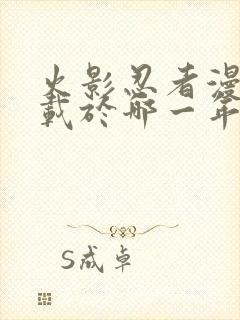 火影忍者漫
載於哪一年
S成卓